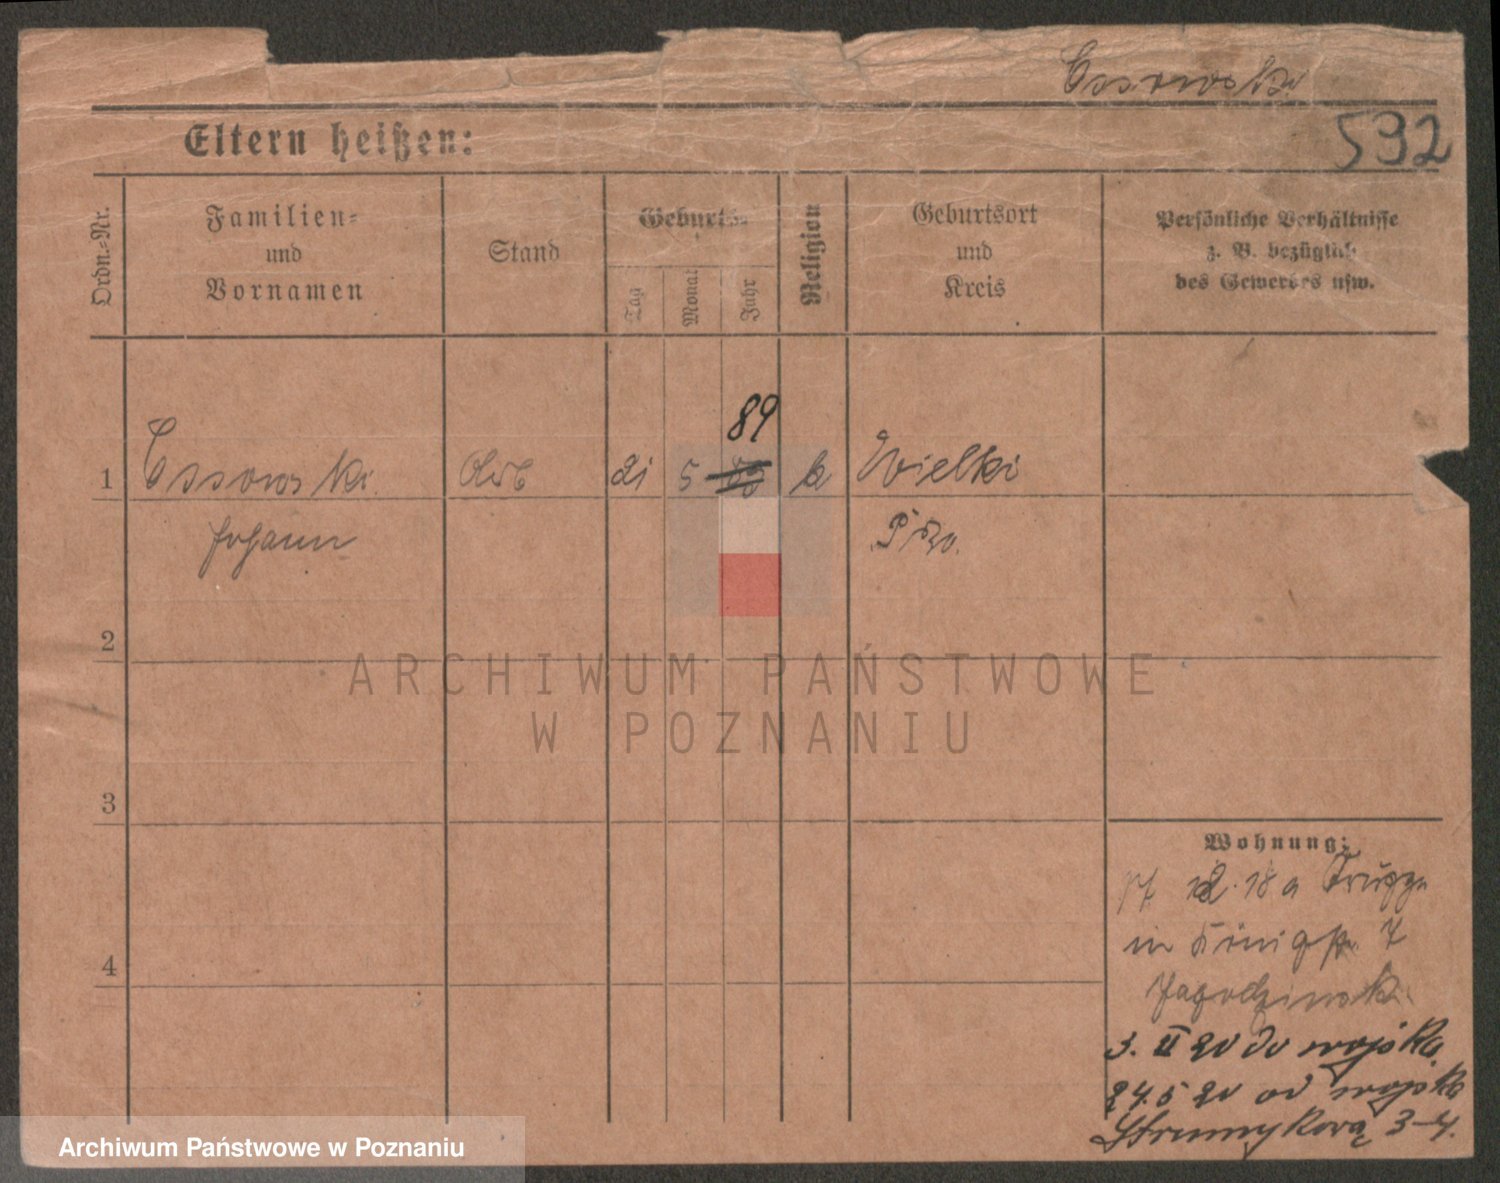 Essowski
592
Eltern heißen:
Ordn.-Nr.
Familien-
und
Vornamen
Stand
Geburts-
Tag
Monat
Jahr
Religion
Geburtsort
und
Kreis
Persönliche Verhältnisse
z. B. bezüglich
des Gewerbes usw.
89
1 Essowski Arb 21 5 k Wielki
Johann
2
3
4
Wohnung:
18 a
in Königstr. 7
Jagodzinski
3. II 20 do wojska
24.5 20 od wojska
Strumykowa 3-4.
ARCHIWUM PAŃSTWOWE
W POZNANIU
Archiwum Państwowe w Poznaniu